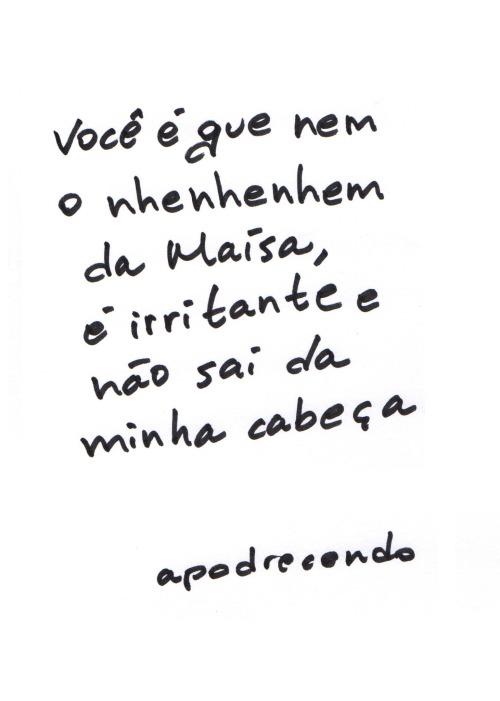 Você é que nem
o nhenhenhem
da Maísa,
é irritante e
não sai da
minha cabeça
apodrecendo